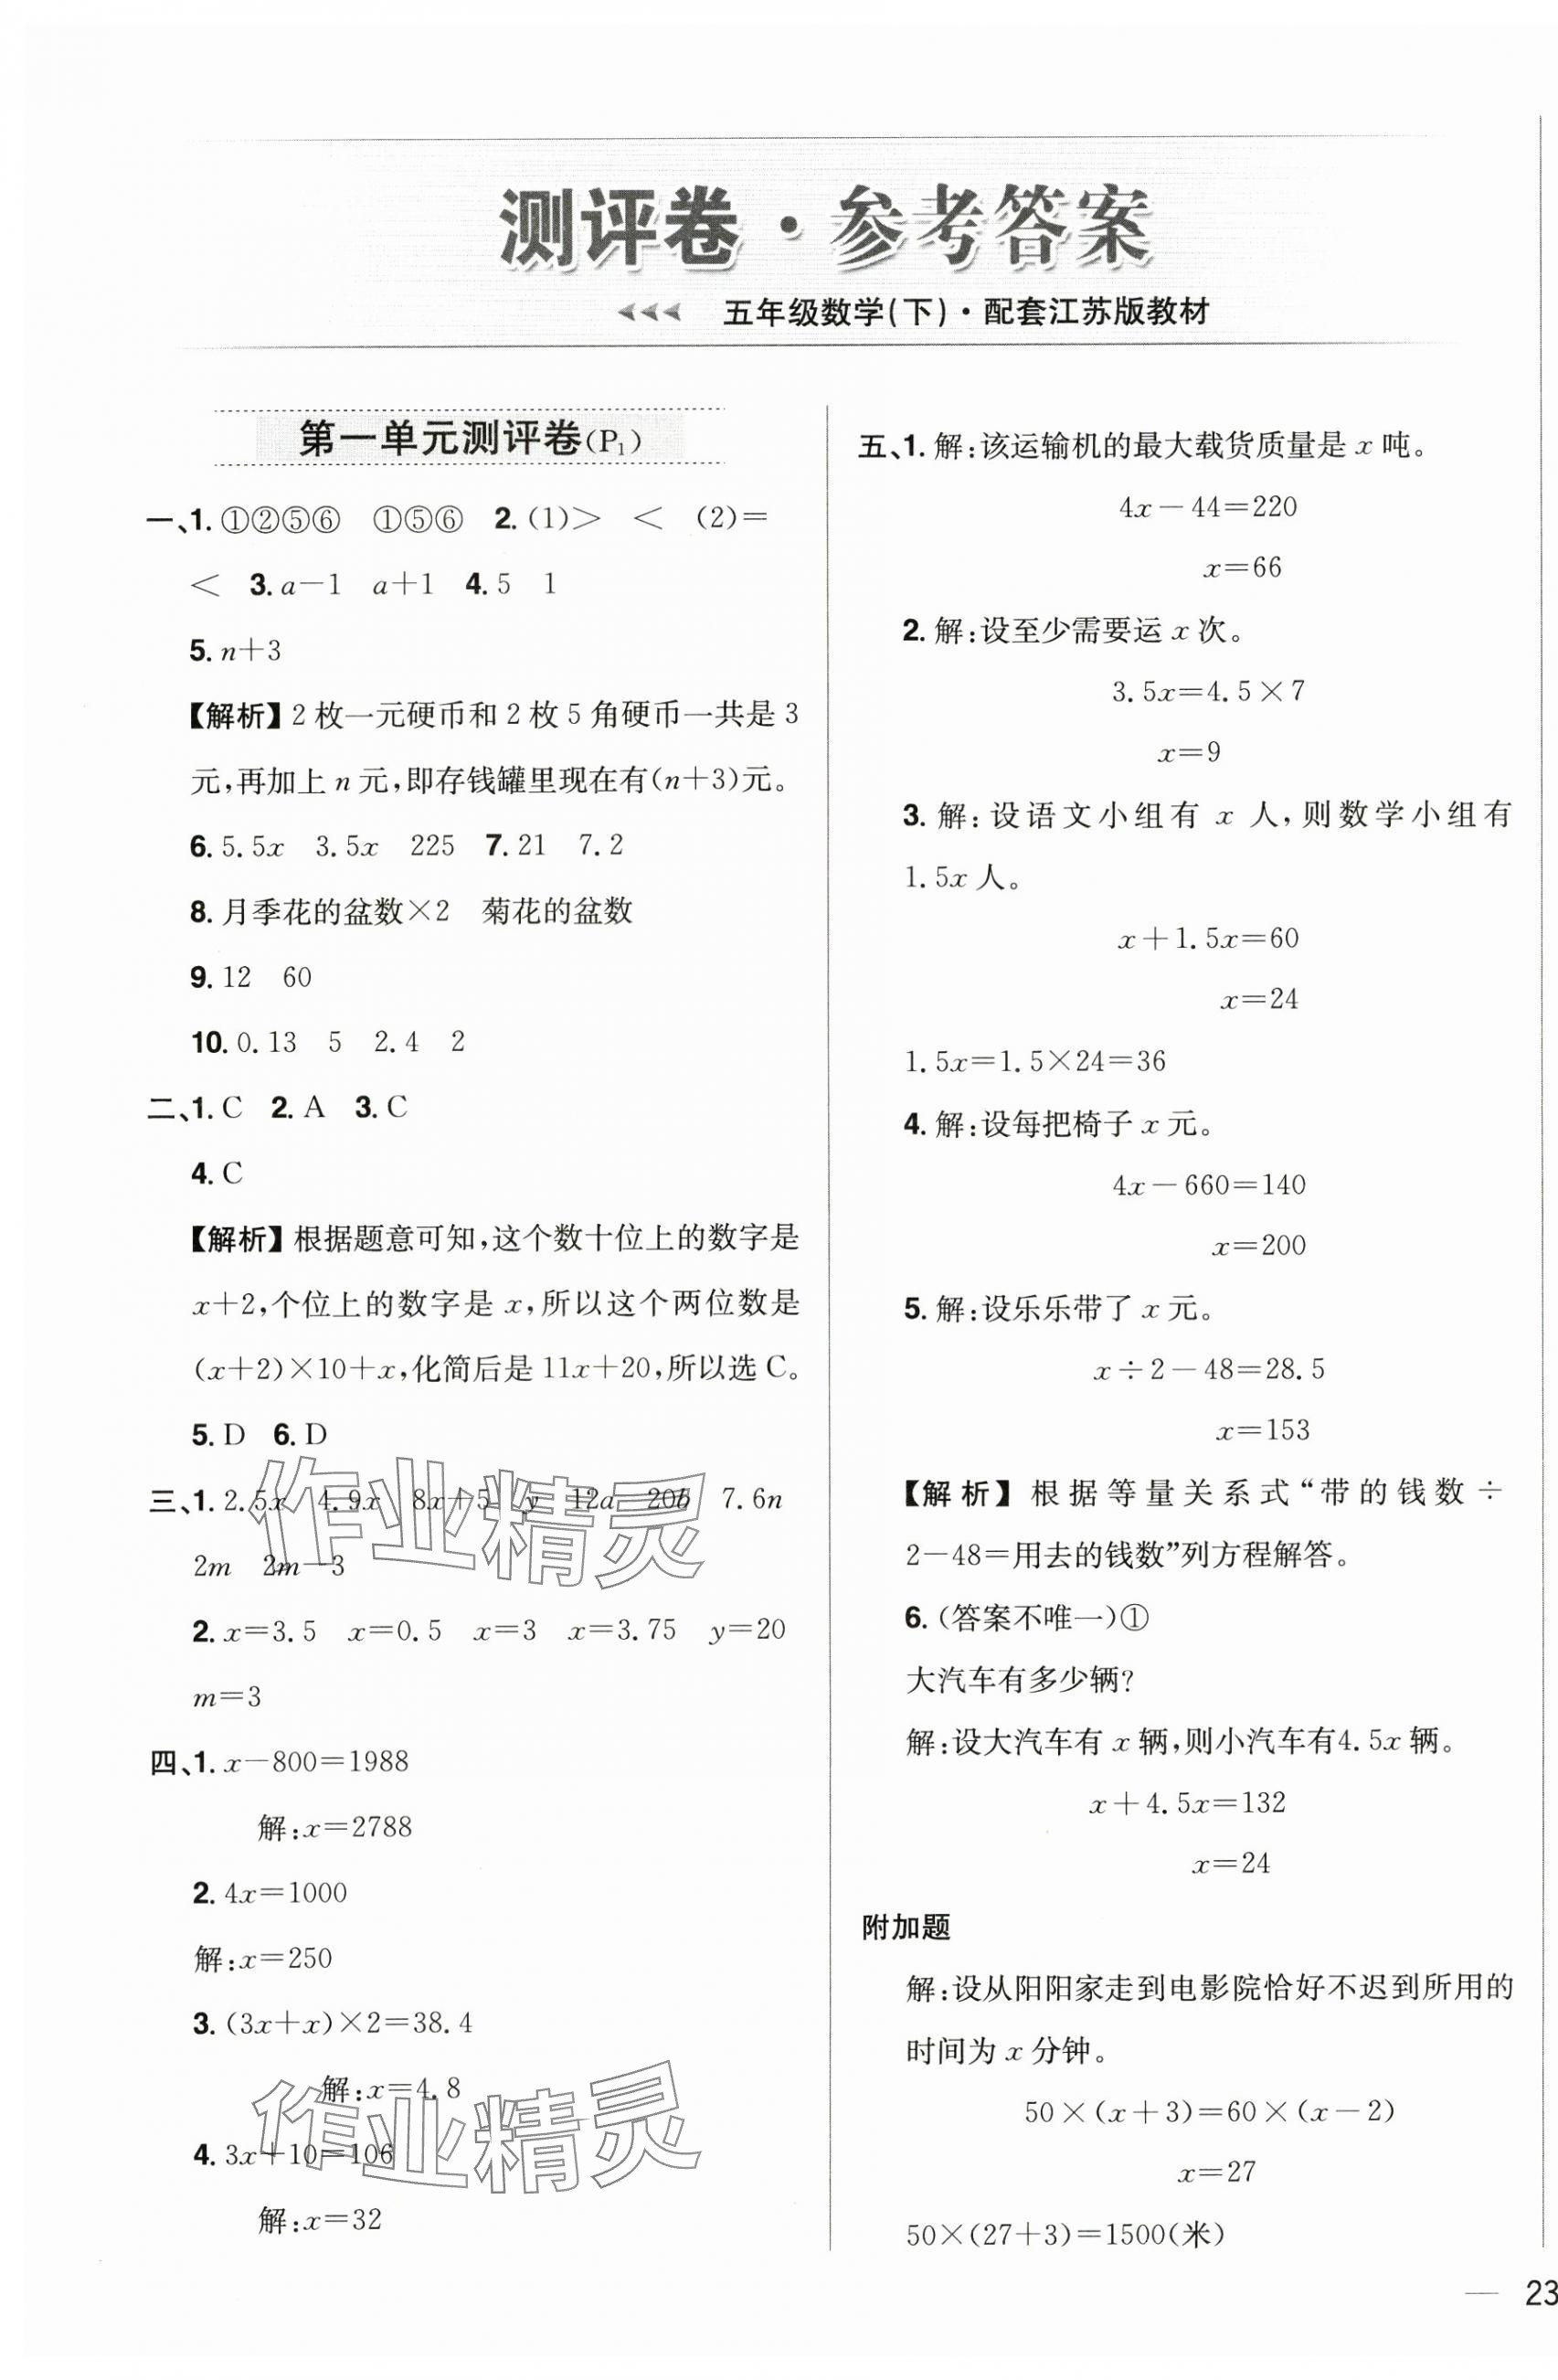 测评卷·参考答案
五年级数学(下)·配套江苏版教材
第一单元测评卷(P₁)
一、1. ①②⑤⑥ ①⑤⑥ 2. (1)> < (2)=
< 3. a－1 a＋1 4. 5 1
5. n＋3
【解析】2枚一元硬币和2枚5角硬币一共是3
元,再加上n元,即存钱罐里现在有(n＋3)元。
6. 5.5x 3.5x 225 7. 21 7.2
8. 月季花的盆数×2 菊花的盆数
9. 12 60
10. 0.13 5 2.4 2
二、1. C 2. A 3. C
4. C
【解析】根据题意可知,这个数十位上的数字是
x＋2,个位上的数字是x,所以这个两位数是
(x＋2)×10＋x,化简后是11x＋20,所以选C。
5. D 6. D
三、1. 2.5x 4.9x 8x＋5 y 12a 20b 7.6n
2m 2m－3
2. x＝3.5 x＝0.5 x＝3 x＝3.75 y＝20
m＝3
四、1. x－800＝1988
解:x＝2788
2. 4x＝1000
解:x＝250
3. (3x＋x)×2＝38.4
解:x＝4.8
4. 3x＋10＝106
解:x＝32
五、1. 解:该运输机的最大载货质量是x吨。
4x－44＝220
x＝66
2. 解:设至少需要运x次。
3.5x＝4.5×7
x＝9
3. 解:设语文小组有x人,则数学小组有
1.5x人。
x＋1.5x＝60
x＝24
1.5x＝1.5×24＝36
4. 解:设每把椅子x元。
4x－660＝140
x＝200
5. 解:设乐乐带了x元。
x÷2－48＝28.5
x＝153
【解析】根据等量关系式“带的钱数÷
2－48＝用去的钱数”列方程解答。
6. (答案不唯一)①
大汽车有多少辆?
解:设大汽车有x辆,则小汽车有4.5x辆。
x＋4.5x＝132
x＝24
附加题
解:设从阳阳家走到电影院恰好不迟到所用的
时间为x分钟。
50×(x＋3)＝60×(x－2)
x＝27
50×(27＋3)＝1500(米)
— 23
作业精灵
作业精灵